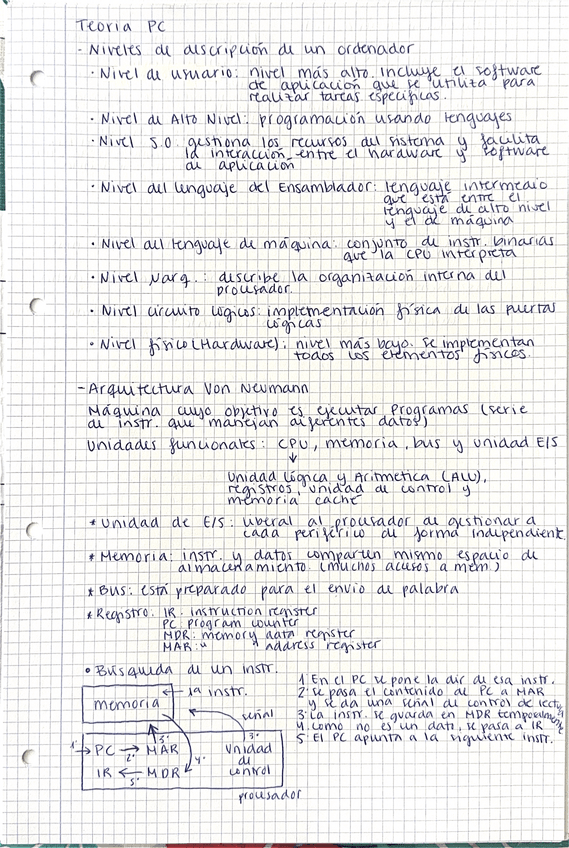 Teoría PC
- Niveles de descripción de un ordenador
· Nivel de usuario: nivel más alto. Incluye el software
de aplicación que se utiliza para
realizar tareas específicas.
· Nivel de Alto Nivel: programación usando lenguajes
· Nivel S.O. gestiona los recursos del sistema y facilita
la interacción entre el hardware y software
de aplicación
· Nivel del lenguaje del Ensamblador: lenguaje intermedio
que está entre el
lenguaje de alto nivel
y el de máquina
· Nivel del lenguaje de máquina: conjunto de instr. binarias
que la CPU interpreta
· Nivel Marq.: describe la organización interna del
procesador.
· Nivel circuito lógicos: implementación física de las puertas
lógicas
· Nivel físico (Hardware): nivel más bajo. Se implementan
todos los elementos físicos.
- Arquitectura Von Neumann
Máquina cuyo objetivo es ejecutar Programas (serie
de instr. que manejan diferentes datos)
Unidades funcionales: CPU, memoria, bus y unidad E/S
↓
Unidad Lógica y Aritmetica (ALU),
registros, unidad de control y
memoria caché
* Unidad de E/S: liberal al procesador de gestionar a
cada periférico de forma independiente.
* Memoria: instr. y datos comparten mismo espacio de
almacenamiento. (muchos accesos a mem.)
* Bus: está preparado para el envio de palabra
* Registro: IR: instruction register
PC: program counter
MDR: memory data register
MAR: " " address register
• Búsqueda de un instr.
memoria ← 1a instr.
señal
1º → PC → MAR
2º
3º
4º
3º
Unidad
de
control
IR ← MDR
5º
procesador
1º En el PC se pone la dir de esa instr.
2º se pasa el contenido de PC a MAR
y se da una señal de control de lectura
3º La instr. se guarda en MDR temporalmente
4º como no es un dato, se pasa a IR
5º El PC apunta a la siguiente instr.